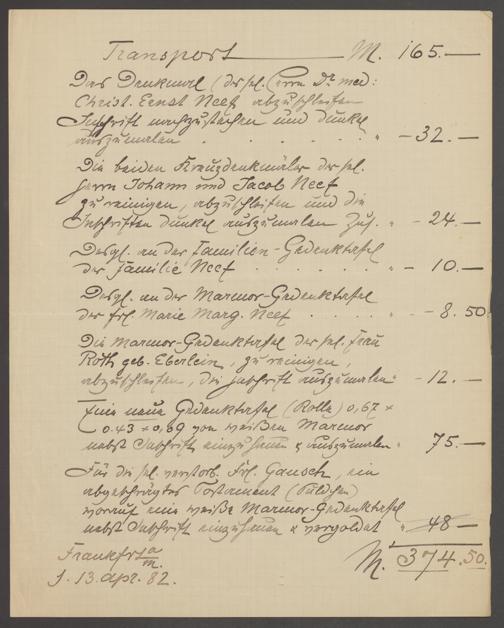 Transport — M. 165.—
Das Denkmal (des sel. Herrn Dr. med:
Christ. Ernst Neef abzuschleifen
Inschrift nachzustechen und dunkel
auszumalen . . . . . . . " – 32.—
Die beiden Kreuzdenkmäler der sel.
Herrn Johann und Jacob Neef
zu reinigen, abzuschleifen und die
Inschriften dunkel auszumalen Zus. " – 24.—
Desgl. an der Familien-Gedenktafel
der Familie Neef . . . . . . " – 10.—
Desgl. an der Marmor-Gedenktafel
der Frl. Marie Marg. Neef . . . . " – 8.50
Die Marmor-Gedenktafel der sel. Frau
Roth geb. Eberlein, zu reinigen,
abzuschleifen, die Inschrift auszumalen " – 12.—
Eine neue Gedenktafel (Rolle) 0,67 ×
0.43 × 0,69 von weißen Marmor
nebst Inschrift einzuhauen & auszumalen " 75.—
Für die sel. verstorb. Frl. Gansch, ein
abgeschrägtes Postament (Pültchen)
worauf eine weiße Marmor-Gedenktafel
nebst Inschrift einzuhauen & vergoldet " 48—
Frankfrt a/m. M. 374.50.
d. 13. Apr. 82.